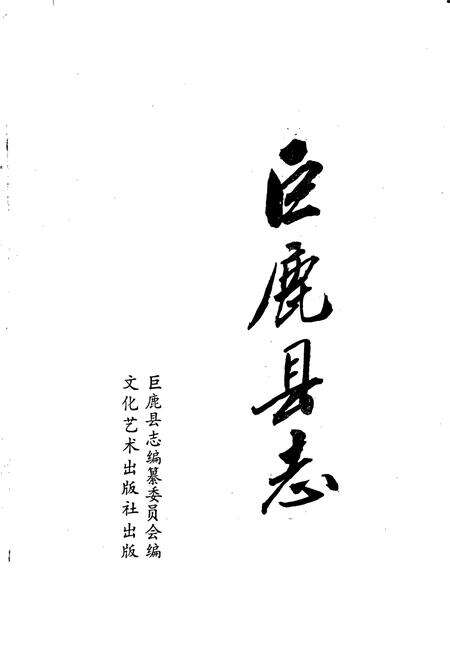 巨鹿县志
巨鹿县志编纂委员会编
文化艺术出版社出版